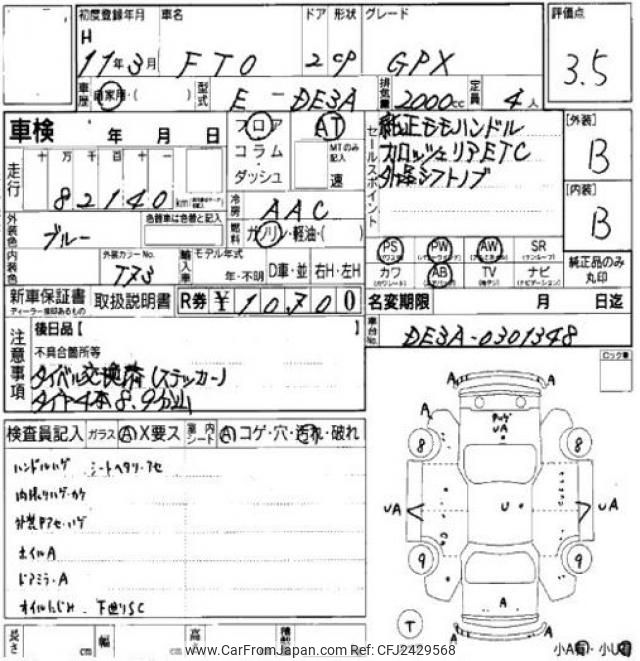 初度登録年月 車名 ドア 形状 グレード 評価点
H 11年3月 FTO 2 CP GPX 3.5
車歴 自家用・( ) 型式 E-DE3A 排気量 2000cc 定員 4人
車検 年 月 日 フロア・コラム・ダッシュ AT MTのみ記入 速
セールスポイント 純正モモハンドル
カロッツェリアETC
外品シフトノブ
[外装] B
[内装] B
走行 十 万 千 百 十 一
82140 km
冷房 AAC
外装色 ブルー 色替車は色替と記入 燃料 ガソリン・軽油・( )
内装色 外装カラーNo. T73 輸入車 モデル年式 年・不明 D車・並 右H・左H
PS PW AW SR (サンルーフ)
カワ (カワシート) AB TV ナビ (ナビゲーション)
純正品のみ丸印
新車保証書 ディーラー捺印あるもの 取扱説明書 R券 ¥10700 名変期限 月 日迄
車台No. DE3A-0301348
注意事項 後日品【 】
不具合箇所等
タイベル交換済(ステッカー)
タイヤ4本8.9分山
コーションプレート
検査員記入 ガラス A X要ス 室内シート A コゲ・穴・汚れ・破れ
ハンドルハゲ シートヘタリ・アセ
内張りハゲ・カケ
外装Pアセ・ハゲ
ホイルA
ドアミラーA
オイルにじみ・下廻りSC
A A
A A
UA
8 8
UA U UA
9 9
A
T
小A有・小U有
長さ cm 幅 cm 高
www.CarFromJapan.com Ref: CFJ2429568